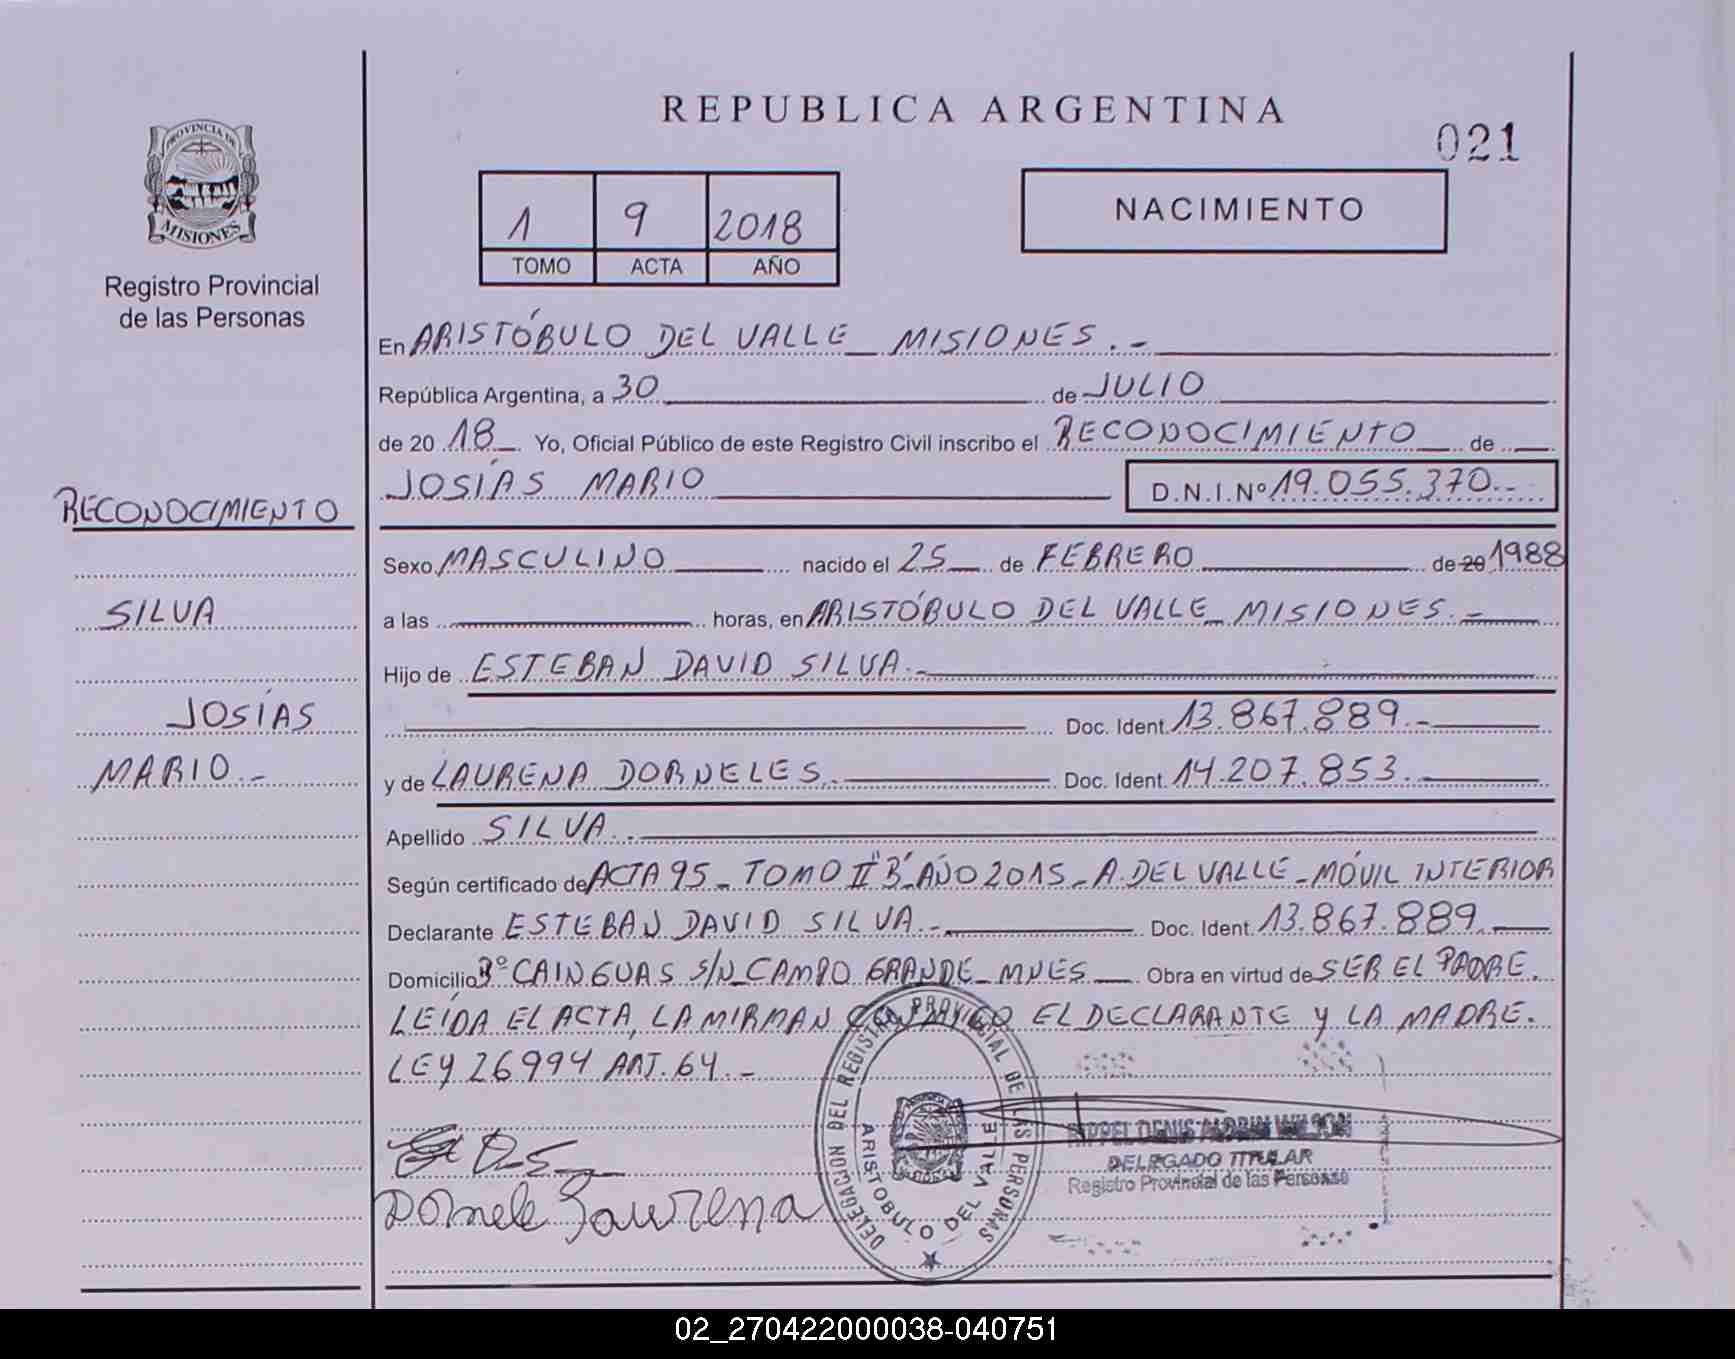 REPUBLICA ARGENTINA
021
PROVINCIA DE
MISIONES
Registro Provincial
de las Personas
1 9 2018
TOMO ACTA AÑO
NACIMIENTO
En ARISTÓBULO DEL VALLE _ MISIONES.-
República Argentina, a 30 de JULIO
de 20 18 Yo, Oficial Público de este Registro Civil inscribo el RECONOCIMIENTO de
JOSÍAS MARIO D.N.I.Nº 19.055.370.-
RECONOCIMIENTO
Sexo MASCULINO nacido el 25 de FEBRERO de 20 1988
SILVA
a las horas, en ARISTÓBULO DEL VALLE _ MISIONES.-
Hijo de ESTEBAN DAVID SILVA.-
JOSÍAS
Doc. Ident. 13.867.889.-
MARIO.-
y de LAURENA DORNELES.- Doc. Ident. 14.207.853.-
Apellido SILVA.-
Según certificado de ACTA 95 - TOMO II "B" - AÑO 2015 - A. DEL VALLE - MÓVIL INTERIOR
Declarante ESTEBAN DAVID SILVA.- Doc. Ident. 13.867.889.
Domicilio Bº CAINGUAS S/N - CAMPO GRANDE - MNES Obra en virtud de SER EL PADRE.
LEÍDA EL ACTA, LA MIRMAN CONMIGO EL DECLARANTE Y LA MADRE.
LEY 26994 ART. 64.-
Dornele Laurena
DELEGACION DEL REGISTRO PROVINCIAL DE LAS PERSONAS
ARISTOBULO DEL VALLE
DENIS WILSON
DELEGADO TITULAR
Registro Provincial de las Personas
02_270422000038-040751